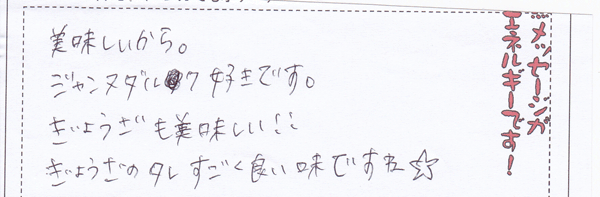 美味しいから。
ジャンヌダルク好きです。
ぎょうざも美味しい!!
ぎょうざのタレすごく良い味ですね☆
※メッセージが
エネルギーです!